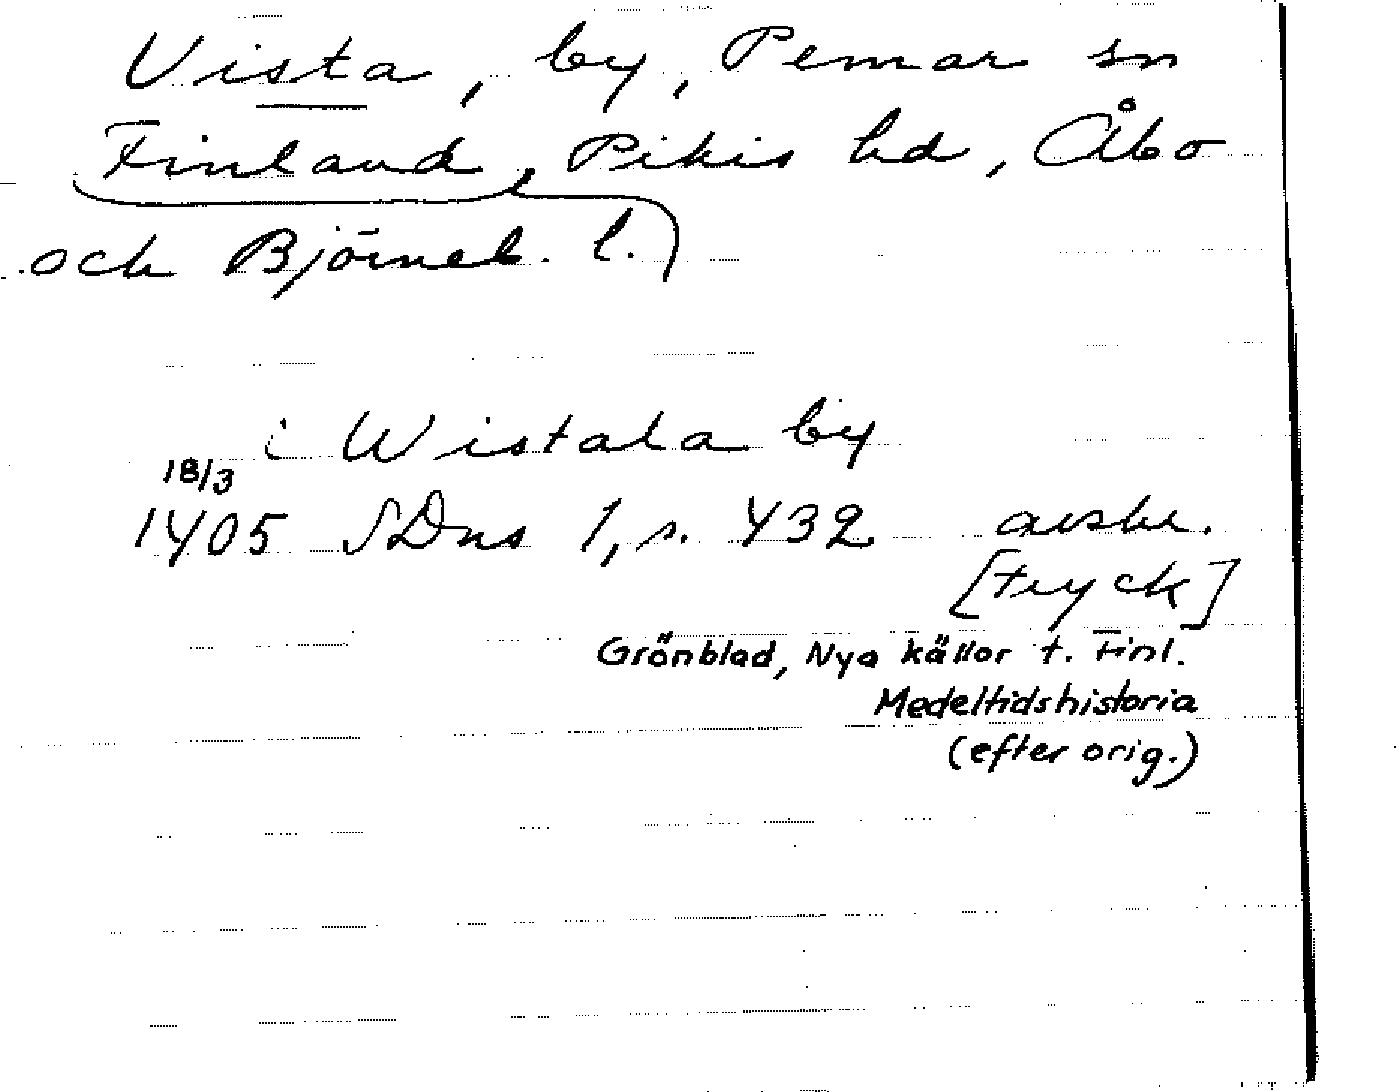 Vista, by, Pemar sn
Finland, Pikis hd, Åbo
och Björneb. l.)
i Wistala by
18/3
1405 SDns 1, s. 432 avskr.
[tryck]
Grönblad, Nya källor t. Finl.
Medeltidshistoria
(efter orig.)